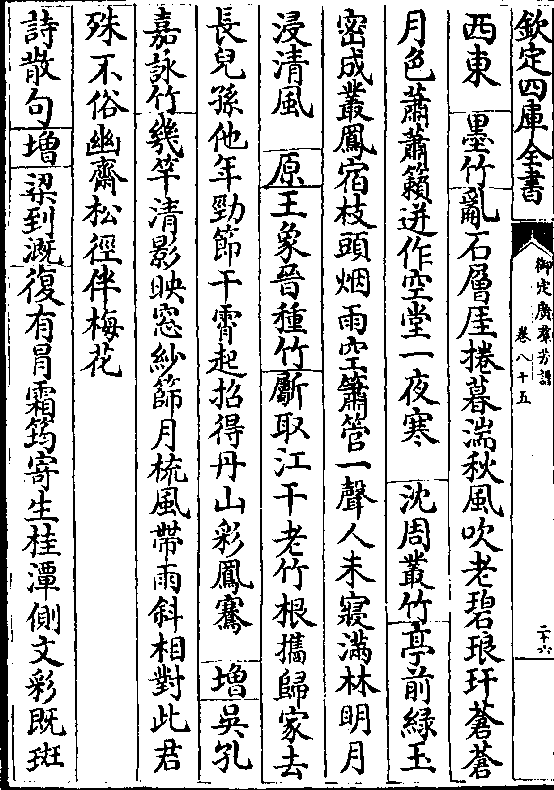 欽定四庫全書
御定廣羣芳譜
卷八十五
二十六
西東　墨竹亂石層厓捲暮湍秋風吹老碧琅玕蒼蒼
月色蕭蕭籟迸作空堂一夜寒　沈周叢竹亭前緑玉
密成叢鳳宿枝頭烟雨空簫管一聲人未寢滿林明月
浸清風　原王象晉種竹斸取江干老竹根攜歸家去
長兒孫他年勁節干霄起招得丹山彩鳳騫　増吳孔
嘉詠竹幾竿清影映窓紗篩月梳風帶雨斜相對此君
殊不俗幽齋松徑伴梅花
詩散句増梁到溉復有冐霜筠寄生桂潭側文彩旣斑